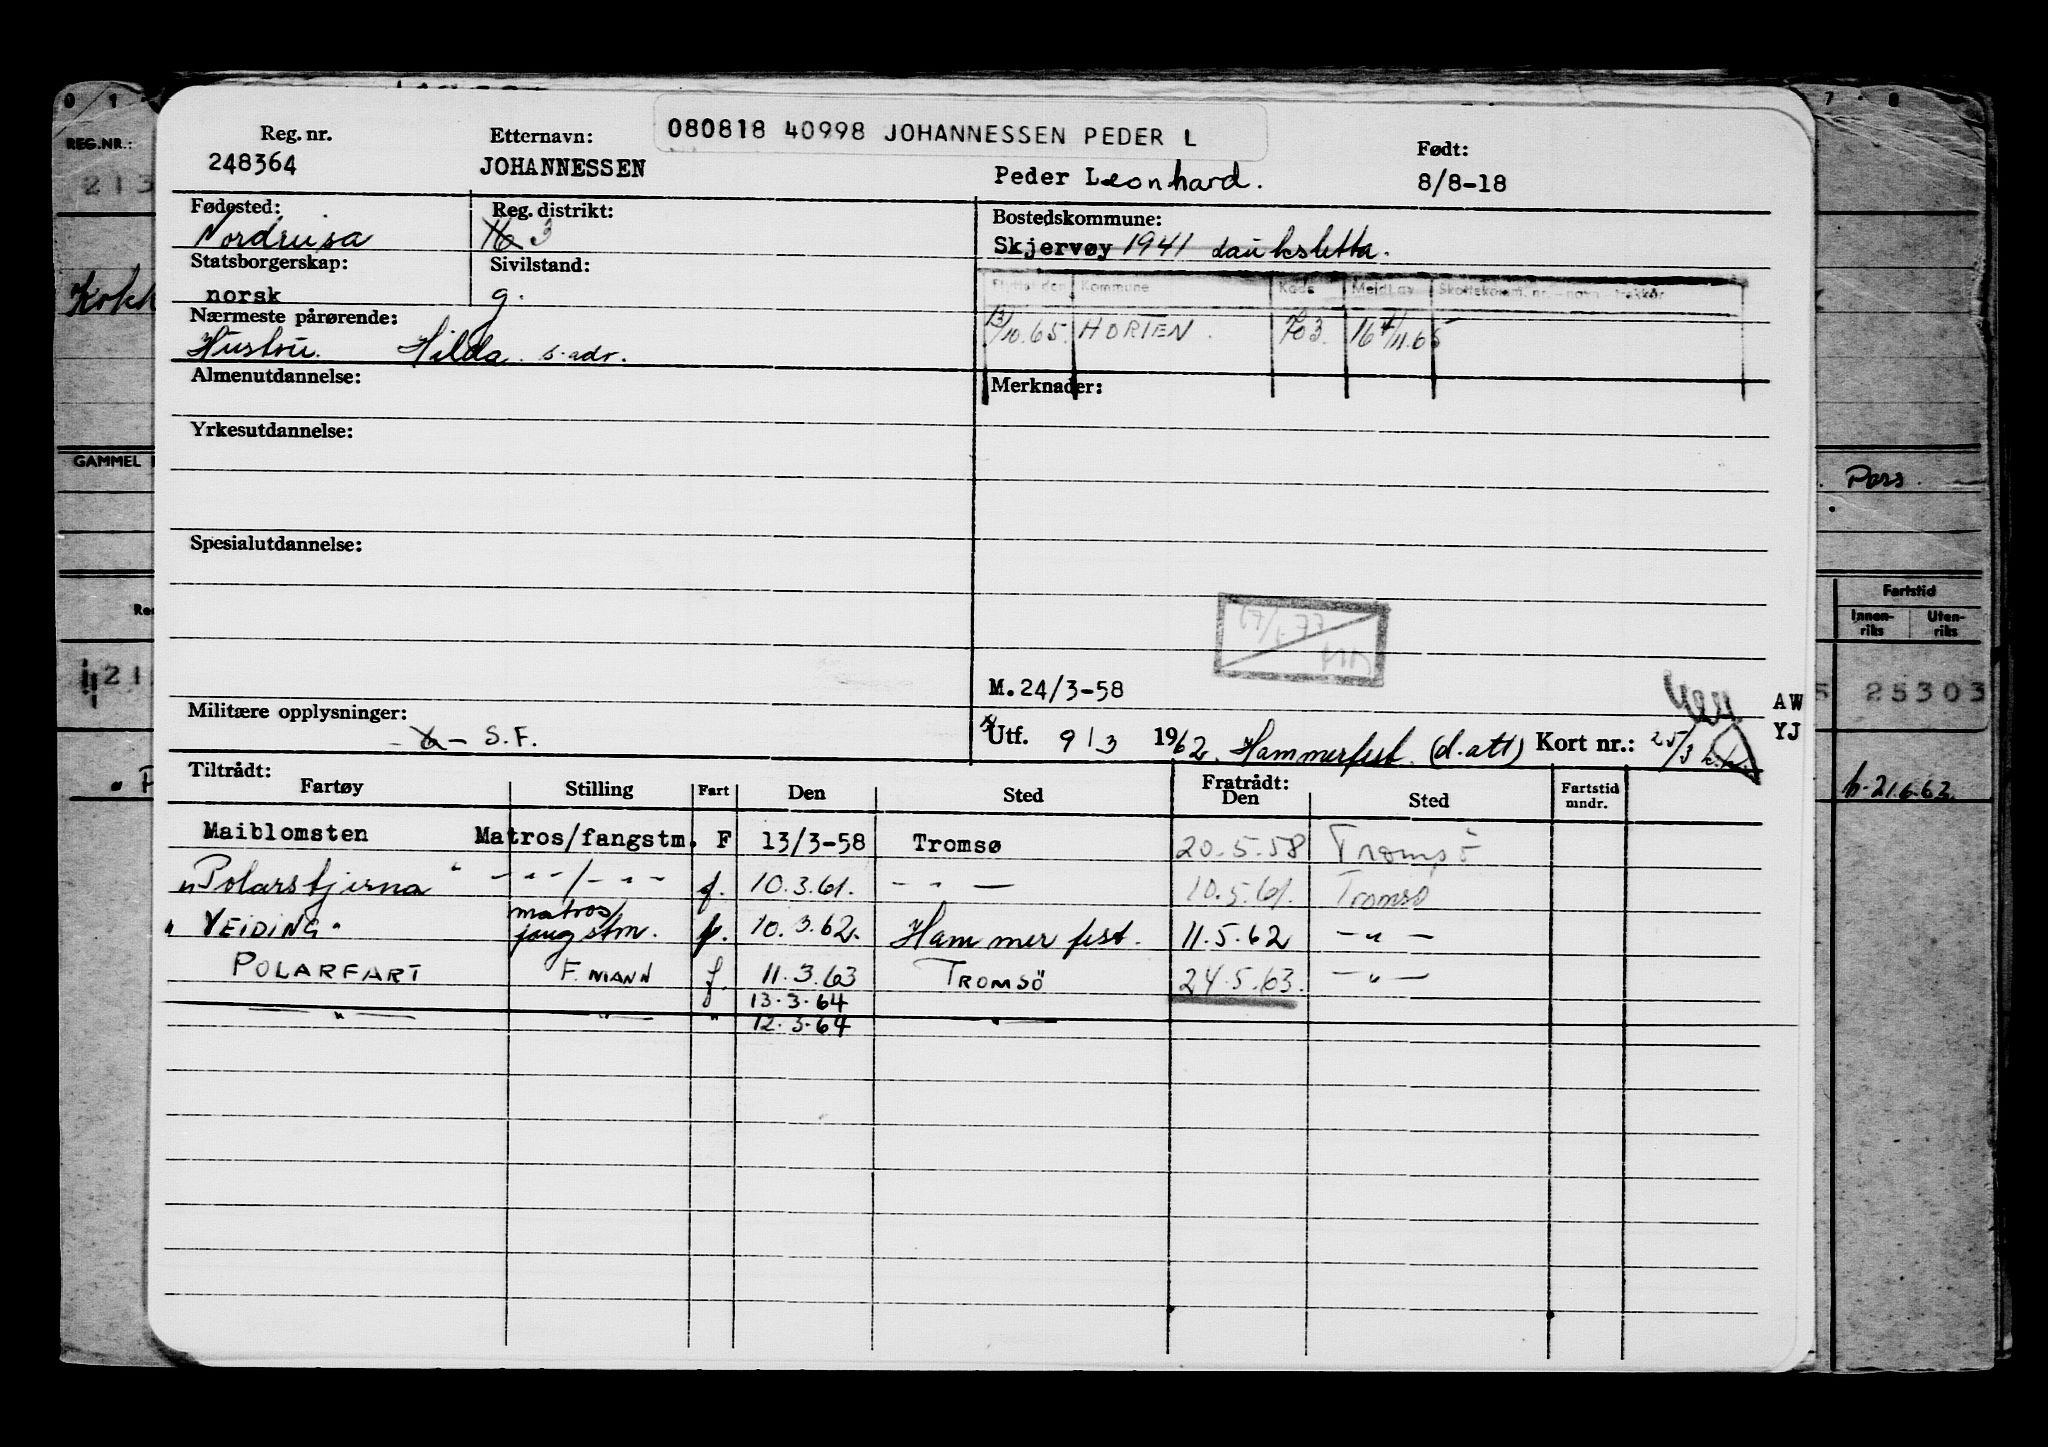 Reg. nr. Etternavn: 080818 40998 JOHANNESSEN PEDER L Født:
248364 JOHANNESSEN Peder Leonhard. 8/8-18
Fødested: Reg. distrikt: Bostedskommune:
Nordreisa 16 3 Skjervøy 1941 Lauksletta.
Statsborgerskap: Sivilstand:
norsk g.
Flyttet den Kommune Kode Meldt av
Nærmeste pårørende:
13/10.65. HORTEN. 703. 16 4/11.65
Hustru. Hilda. s. adr.
Almenutdannelse: Merknader:
Yrkesutdannelse:
Spesialutdannelse:
M.24/3-58
Militære opplysninger: S.F.
Utf. 9/3 1962. Hammerfest. (d. att) Kort nr.: 25/3
AW
YJ
Tiltrådt: Fratrådt:
Fartøy Stilling Fart Den Sted Den Sted Fartstid mndr.
Maiblomsten Matros/fangstm. F 13/3-58 Tromsø 20.5.58 Tromsø
"Polarstjerna" -"-/-"- f. 10.3.61. -"- 10.5.61. Tromsø
"VEIDING" matros/fangstm. f. 10.3.62. Hammerfest. 11.5.62 -"-
POLARFART F.MANN f. 11.3.63 TROMSÖ 24.5.63. -"-
13.3.64
-"- -"- " 12.3.64 -"-
0 1
REG.NR.:
213
GAMMEL
7 8
Pers.
Fartstid
Innen-riks Uten-riks
25303
21.6.62.